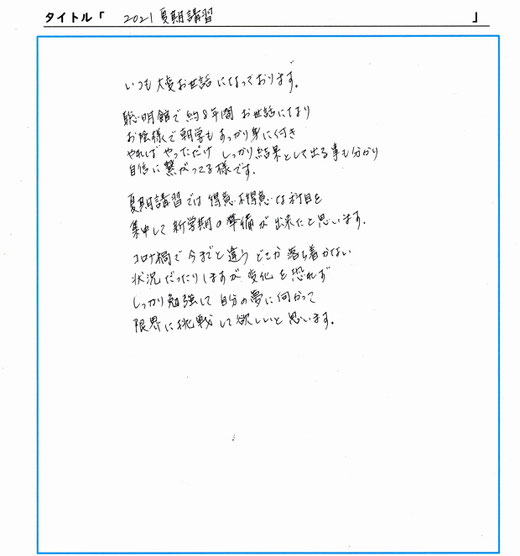 タイトル「 2021 夏期講習 」
いつも大変お世話になっております。
聡明館で約8年間 お世話になり
お陰様で朝学もすっかり身に付き
やれば やっただけ しっかり結果として出る事も分かり
自信に繋がってる様です。
夏期講習では 得意 不得意な科目を
集中して 新学期の準備が出来たと思います。
コロナ禍で 今までと違う どこか落ち着かない
状況だったりしますが 変化を恐れず
しっかり勉強して 自分の夢に向かって
限界に挑戦して欲しいと思います。